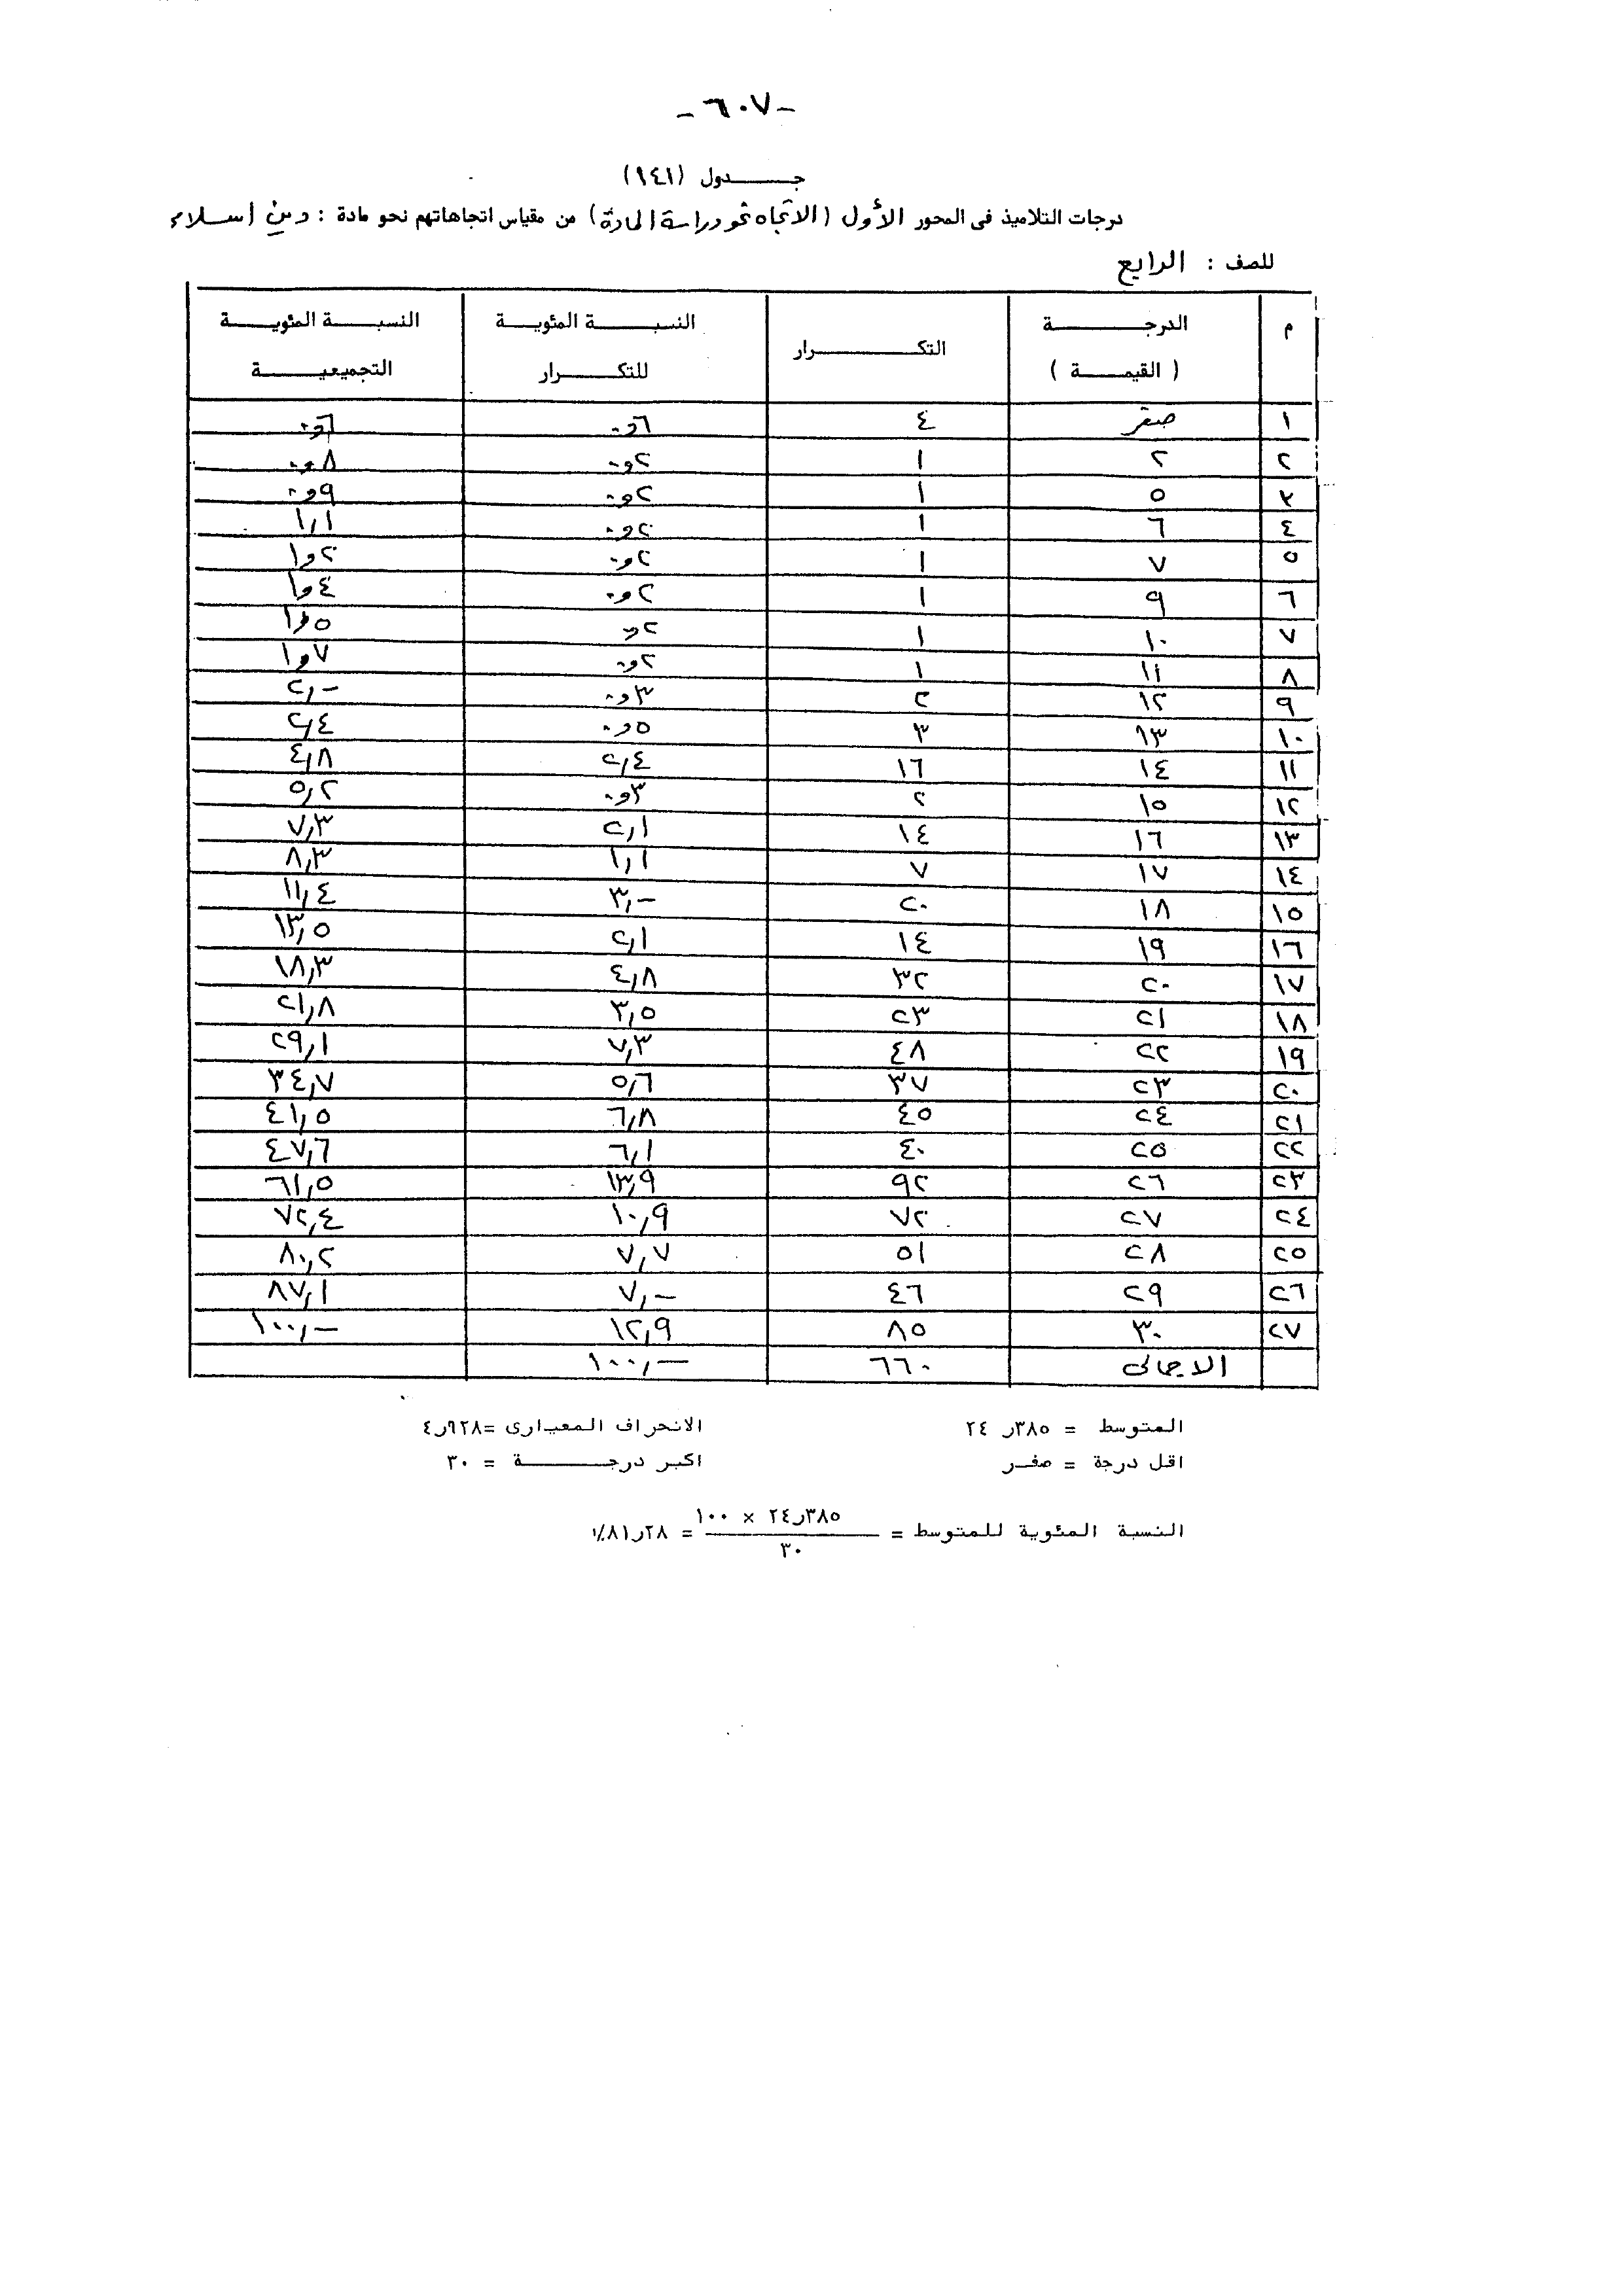 -٦٠٧-
جـــدول (١٤١)
درجات التلاميذ فى المحور الأول (الاتجاه نحو دراسة المادة) من مقياس اتجاهاتهم نحو مادة : دين إسلامى
للصف : الرابع
م الدرجـــة (القيمـــة) التكـــرار النسبـــة المئويـــة للتكـــرار النسبـــة المئويـــة التجميعيـــة
١ صفر ٤ ٦و٠ ٦و٠
٢ ٢ ١ ٢و٠ ٨و٠
٣ ٥ ١ ٢و٠ ٩و٠
٤ ٦ ١ ٢و٠ ١,١
٥ ٧ ١ ٢و٠ ٢و١
٦ ٩ ١ ٢و٠ ٤و١
٧ ١٠ ١ ٢و٠ ٥و١
٨ ١١ ١ ٢و٠ ٧و١
٩ ١٢ ٢ ٣و٠ ٢,-
١٠ ١٣ ٣ ٥و٠ ٢,٤
١١ ١٤ ١٦ ٢,٤ ٤,٨
١٢ ١٥ ٢ ٣و٠ ٥,٢
١٣ ١٦ ١٤ ٢,١ ٧,٣
١٤ ١٧ ٧ ١,١ ٨,٣
١٥ ١٨ ٢٠ ٣,- ١١,٤
١٦ ١٩ ١٤ ٢,١ ١٣,٥
١٧ ٢٠ ٣٢ ٤,٨ ١٨,٣
١٨ ٢١ ٢٣ ٣,٥ ٢١,٨
١٩ ٢٢ ٤٨ ٧,٣ ٢٩,١
٢٠ ٢٣ ٣٧ ٥,٦ ٣٤,٧
٢١ ٢٤ ٤٥ ٦,٨ ٤١,٥
٢٢ ٢٥ ٤٠ ٦,١ ٤٧,٦
٢٣ ٢٦ ٩٢ ١٣,٩ ٦١,٥
٢٤ ٢٧ ٧٢ ١٠,٩ ٧٢,٤
٢٥ ٢٨ ٥١ ٧,٧ ٨٠,٢
٢٦ ٢٩ ٤٦ ٧,- ٨٧,١
٢٧ ٣٠ ٨٥ ١٢,٩ ١٠٠,-
الاجمالى ٦٦٠ ١٠٠,-
المتوسط = ٣٨٥ر٢٤ الانحراف المعيارى = ٩٢٨ر٤
اقل درجة = صفـر اكبر درجـــة = ٣٠
٣٨٥ر٢٤ × ١٠٠
النسبة المئوية للمتوسط = ــــــــــ = ٢٨ر٨١٪
٣٠